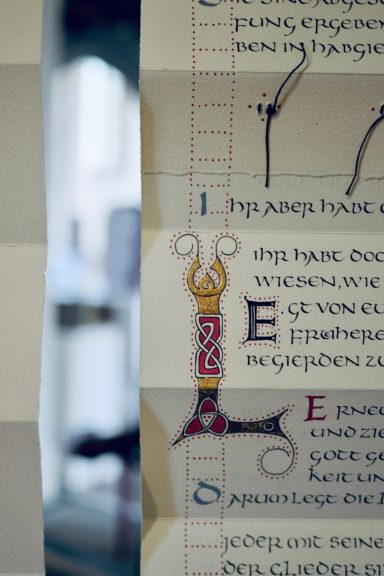 SIE SIND ABGES
FUNG ERGEBEN
BEN IN HABGIE
IHR ABER HABT
IHR HABT DOC
WIESEN, WIE
LEGT VON EU
FRÜHERE
BEGIERDEN ZU
ERNE
UND ZIE
GOTT GE
KEIT UN
DARUM LEGT DIE L
JEDER MIT SEINE
DER GLIEDER SI